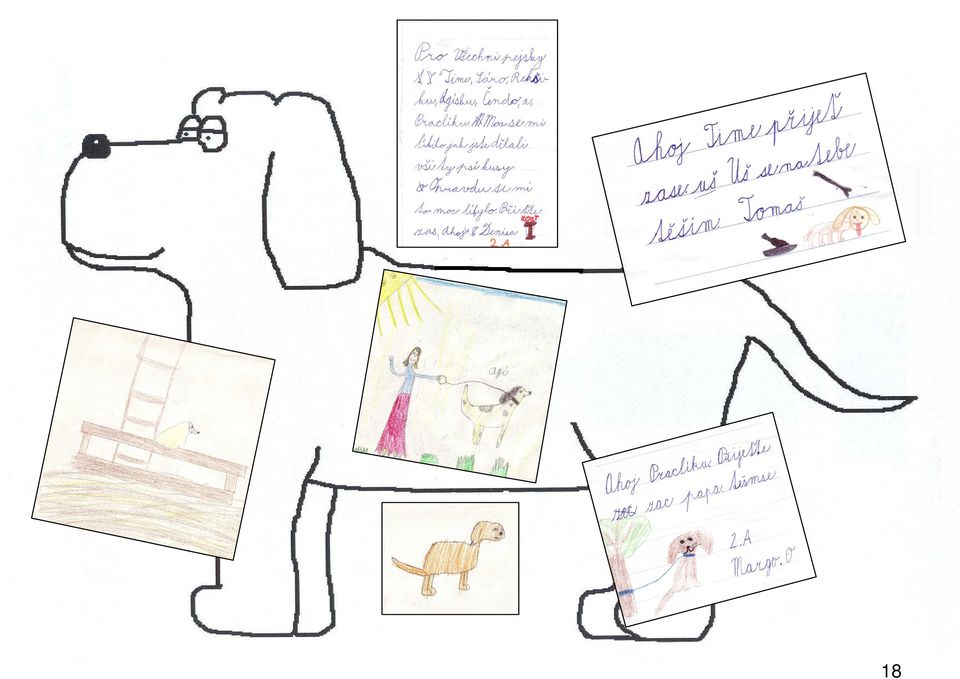 Pro Všechni pejsky
Time, Sáro, Reksí-
ku, Agísku, Čendo, a,
Pracliku Moc se mi
líbilo, jak jste dělali
vší ty psí kusy.
Opravdu se mi
to moc líbylo. Přište
zas, Ahoj 8 Denisa
KOST
2.A
Ahoj Time přijeť
zase uš Uš se na tebe
těším. Tomaš
agi
Ahoj Pracliku. Přijeťte
zac papa těšmse
2.A
Margo. O
18